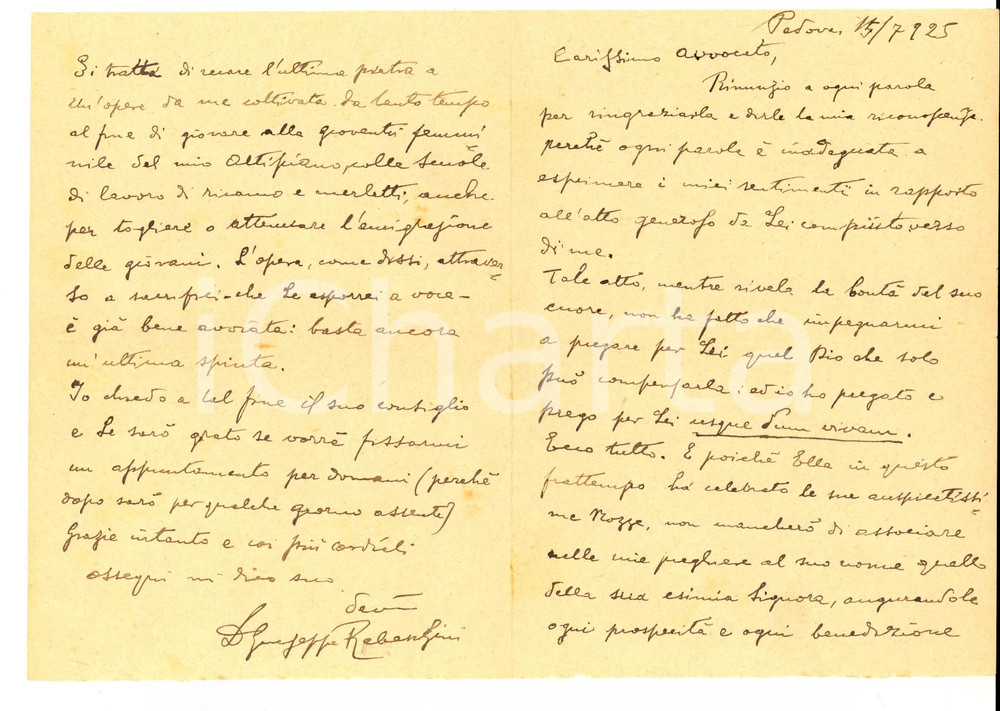 Padova, 15/7 925
Carissimo avvocato,
Rinunzio a ogni parola
per ringraziarla e dirle la mia riconoscenza.
perchè ogni parola è inadeguata a
esprimere i miei sentimenti in rapporto
all'atto generoso da Lei compiuto verso
di me.
Tale atto, mentre rivela la bontà del suo
cuore, non ha fatto che impegnarmi
a pregare per Lei quel Dio che solo
può compensarla: ed io ho pregato e
prego per Lei usque dum vivam.
Ecco tutto. E poichè Ella in questo
frattempo ha celebrato le sue auspicatissi-
me Nozze, non mancherò di associare
nelle mie preghiere al suo nome quello
della sua esimia Signora, augurandole
ogni prosperità e ogni benedizione
Si tratta di recare l'ultima pietra a
un'opera da me coltivata da tanto tempo
al fine di giovare alla gioventù femmi-
nile del mio Altipiano, colle Scuole
di lavoro di ricamo e merletti, anche
per togliere o attenuare l'emigrazione
delle giovani. L'opera, come dissi, attraver-
so a sacrifici - che Le esporrei a voce -
è già bene avviata: basta ancora
un'ultima spinta.
Io chiedo a tal fine il suo consiglio
e Le sarò grato se vorrà fissarmi
un appuntamento per domani (perchè
dopo sarò per qualche giorno assente)
Grazie intanto e coi più cordiali
ossequi mi dico suo
dev.
D Giuseppe Rebeschini
iCharta